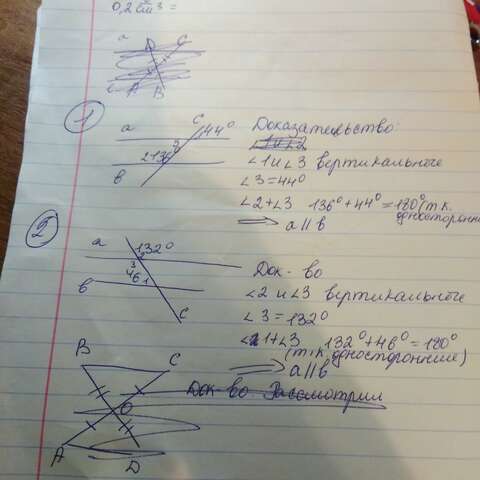 0,2 см³ =
a
D C
A B
1
a
C
44°
3
∠136°
b
Доказательство:
∠1 и ∠2
∠1 и ∠3 вертикальные
∠3=44°
∠2+∠3 136°+44°=180° (т.к.
односторонние
=> a || b
2
a
132°
3 2
46 1
b
C
Док-во
∠2 и ∠3 вертикальные
∠3=132°
∠1+∠3 132°+46°=180°
(т.к. односторонние)
=> a || b
B C
Док-во Рассмотрим
O
A D